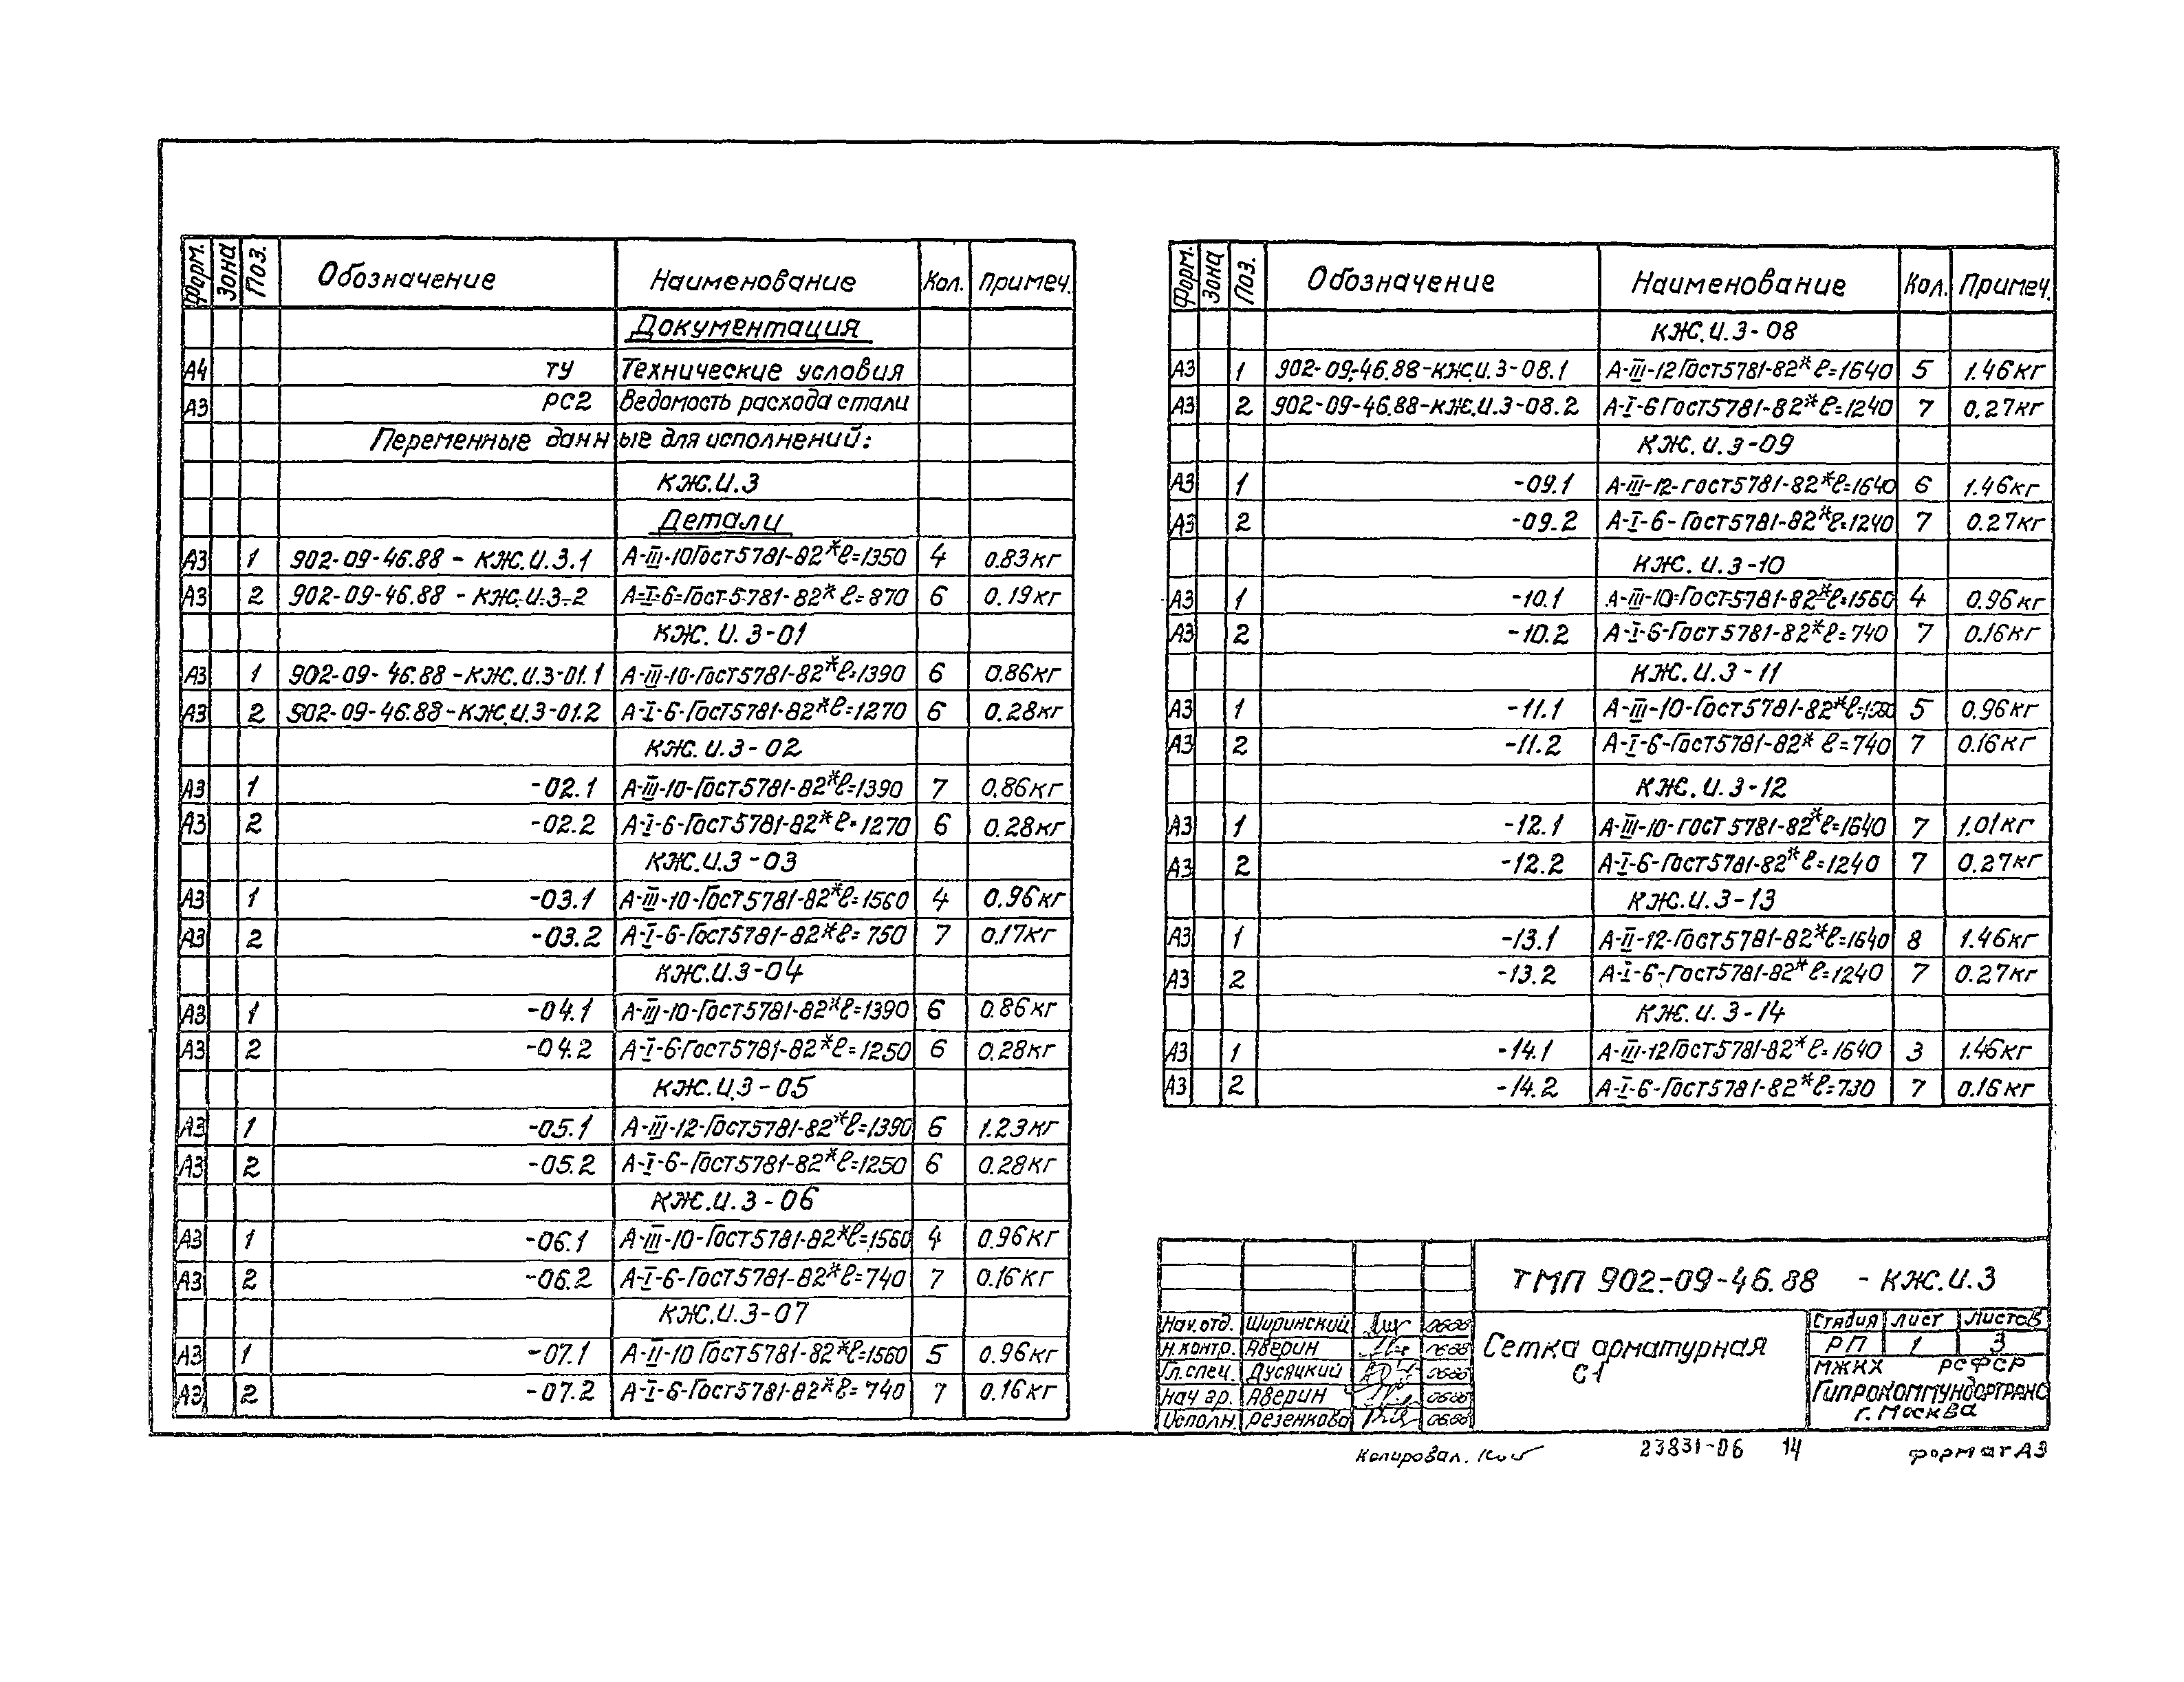 Форм. Зона Поз. Обозначение Наименование Кол. Примеч.
Документация
А4 ТУ Технические условия
А3 РС2 Ведомость расхода стали
Переменные данные для исполнений:
КЖ.И.3
Детали
А3 1 902-09-46.88 - КЖ.И.3.1 А-III-10Гост5781-82*ℓ=1350 4 0.83кг
А3 2 902-09-46.88 - КЖ.И.3-2 А-I-6-Гост5781-82* ℓ=870 6 0.19кг
КЖ.И.3-01
А3 1 902-09-46.88-КЖ.И.3-01.1 А-III-10-Гост5781-82*ℓ=1390 6 0.86кг
А3 2 902-09-46.88-КЖ.И.3-01.2 А-I-6-Гост5781-82*ℓ=1270 6 0.28кг
КЖ.И.3-02
А3 1 -02.1 А-III-10-Гост5781-82*ℓ=1390 7 0.86кг
А3 2 -02.2 А-I-6-Гост5781-82*ℓ=1270 6 0.28кг
КЖ.И.3-03
А3 1 -03.1 А-III-10-Гост5781-82*ℓ=1560 4 0.96кг
А3 2 -03.2 А-I-6-Гост5781-82*ℓ=750 7 0.17кг
КЖ.И.3-04
А3 1 -04.1 А-III-10-Гост5781-82*ℓ=1390 6 0.86кг
А3 2 -04.2 А-I-6-Гост5781-82*ℓ=1250 6 0.28кг
КЖ.И.3-05
А3 1 -05.1 А-III-12-Гост5781-82*ℓ=1390 6 1.23кг
А3 2 -05.2 А-I-6-Гост5781-82*ℓ=1250 6 0.28кг
КЖ.И.3-06
А3 1 -06.1 А-III-10-Гост5781-82*ℓ=1560 4 0.96кг
А3 2 -06.2 А-I-6-Гост5781-82*ℓ=740 7 0.16кг
КЖ.И.3-07
А3 1 -07.1 А-II-10 Гост5781-82*ℓ=1560 5 0.96кг
А3 2 -07.2 А-I-6-Гост5781-82*ℓ=740 7 0.16кг
Форм. Зона Поз. Обозначение Наименование Кол. Примеч.
КЖ.И.3-08
А3 1 902-09-46.88-КЖ.И.3-08.1 А-III-12Гост5781-82*ℓ=1640 5 1.46кг
А3 2 902-09-46.88-КЖ.И.3-08.2 А-I-6Гост5781-82*ℓ=1240 7 0.27кг
КЖ.И.3-09
А3 1 -09.1 А-III-12-Гост5781-82*ℓ=1640 6 1.46кг
А3 2 -09.2 А-I-6-Гост5781-82*ℓ=1240 7 0.27кг
КЖ.И.3-10
А3 1 -10.1 А-III-10-Гост5781-82*ℓ=1560 4 0.96кг
А3 2 -10.2 А-I-6-Гост5781-82*ℓ=740 7 0.16кг
КЖ.И.3-11
А3 1 -11.1 А-III-10-Гост5781-82* 5 0.96кг
А3 2 -11.2 А-I-6-Гост5781-82* ℓ=740 7 0.16кг
КЖ.И.3-12
А3 1 -12.1 А-III-10-гост5781-82*ℓ=1640 7 1.01кг
А3 2 -12.2 А-I-6-Гост5781-82*ℓ=1240 7 0.27кг
КЖ.И.3-13
А3 1 -13.1 А-II-12-Гост5781-82*ℓ=1640 8 1.46кг
А3 2 -13.2 А-I-6-Гост5781-82*ℓ=1240 7 0.27кг
КЖ.И.3-14
А3 1 -14.1 А-III-12Гост5781-82*ℓ=1640 3 1.46кг
А3 2 -14.2 А-I-6-Гост5781-82*ℓ=730 7 0.16кг
ТМП 902-09-46.88 - КЖ.И.3
Нач.отд. Ширинский
Н.контр. Аверин
Гл.спец. Дусяцкий
Нач гр. Аверин
Исполн. Резенкова
Сетка арматурная
С1
Стадия Лист Листов
РП 1 3
МЖКХ РСФСР
Гипрокоммундортранс
г. Москва
Копировал.
23831-06 14
формат А3